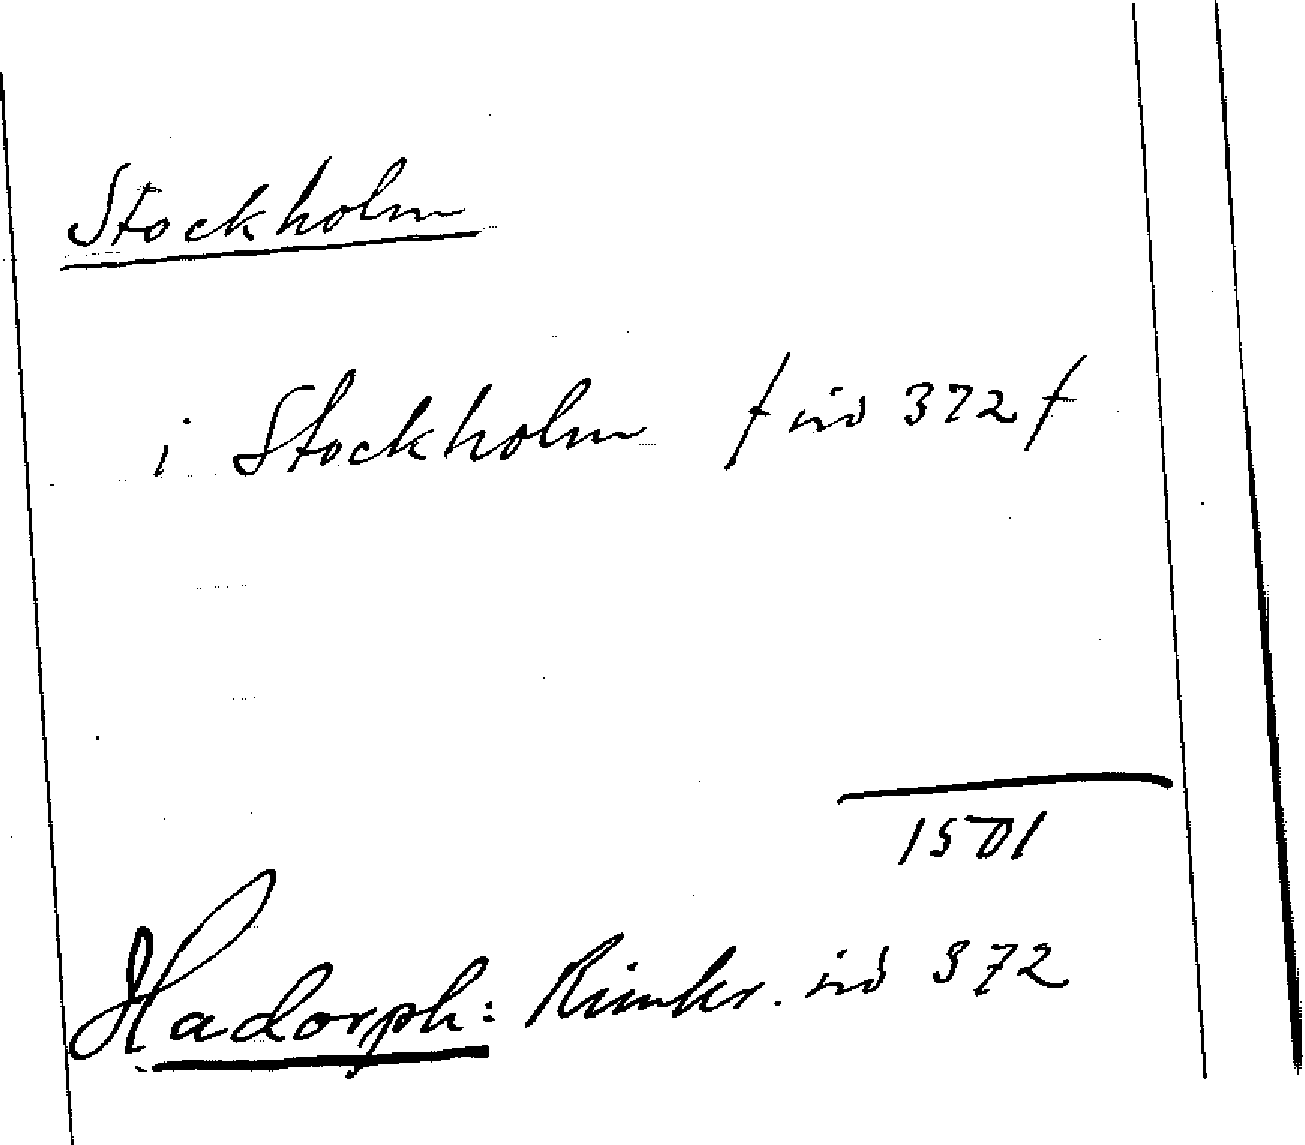 Stockholm
i Stockholm f sid 372 f
1501
Hadorph: Rimkr. sid 372